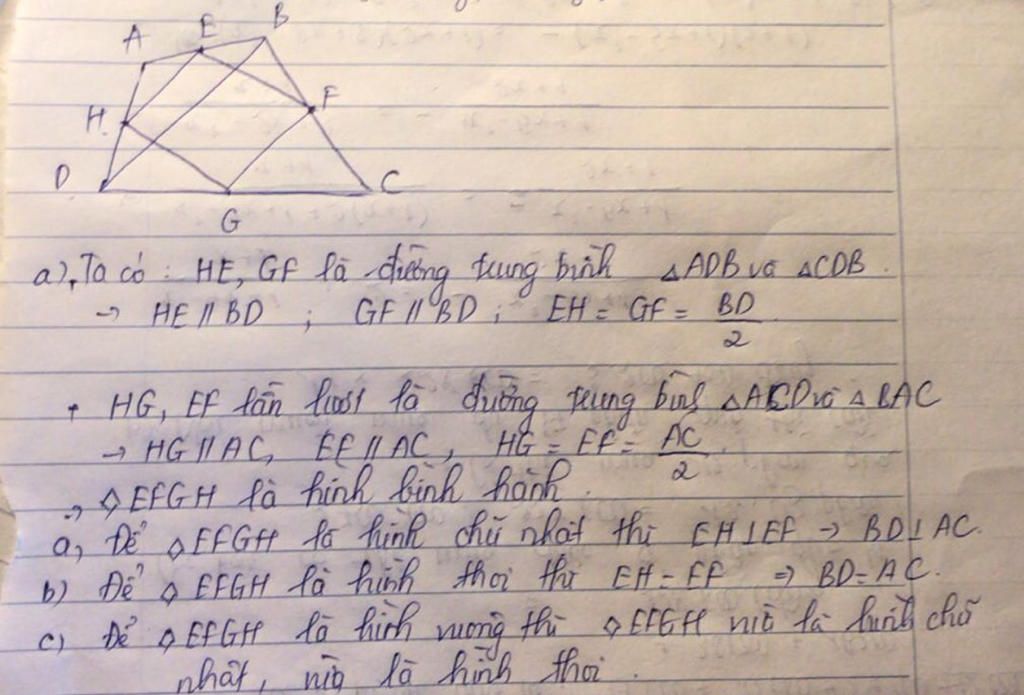 A E B
H F
D C
G
a), Ta có : HE, GF là đường trung bình △ADB và △CDB.
→ HE // BD ; GF // BD ; EH = GF = BD/2
+ HG, EF lần lượt là đường trung bình △ACD và △BAC
→ HG // AC, EF // AC, HG = EF = AC/2.
→ ◇EFGH là hình bình hành.
a, Để ◇EFGH là hình chữ nhật thì EH⊥EF → BD⊥AC.
b) Để ◇EFGH là hình thoi thì EH = EF ⇒ BD = AC.
c) Để ◇EFGH là hình vuông thì ◇EFGH vừa là hình chữ
nhật, vừa là hình thoi.